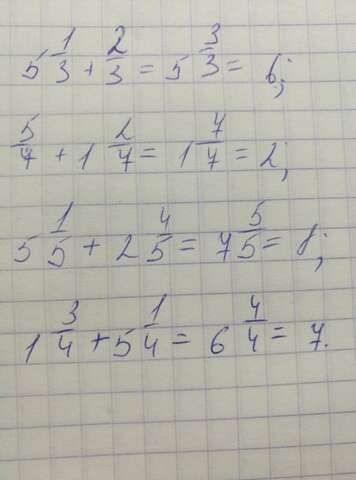 5 1/3 + 2/3 = 5 3/3 = 6;
5/7 + 1 2/7 = 1 7/7 = 2;
5 1/5 + 2 4/5 = 7 5/5 = 8;
1 3/4 + 5 1/4 = 6 4/4 = 7.